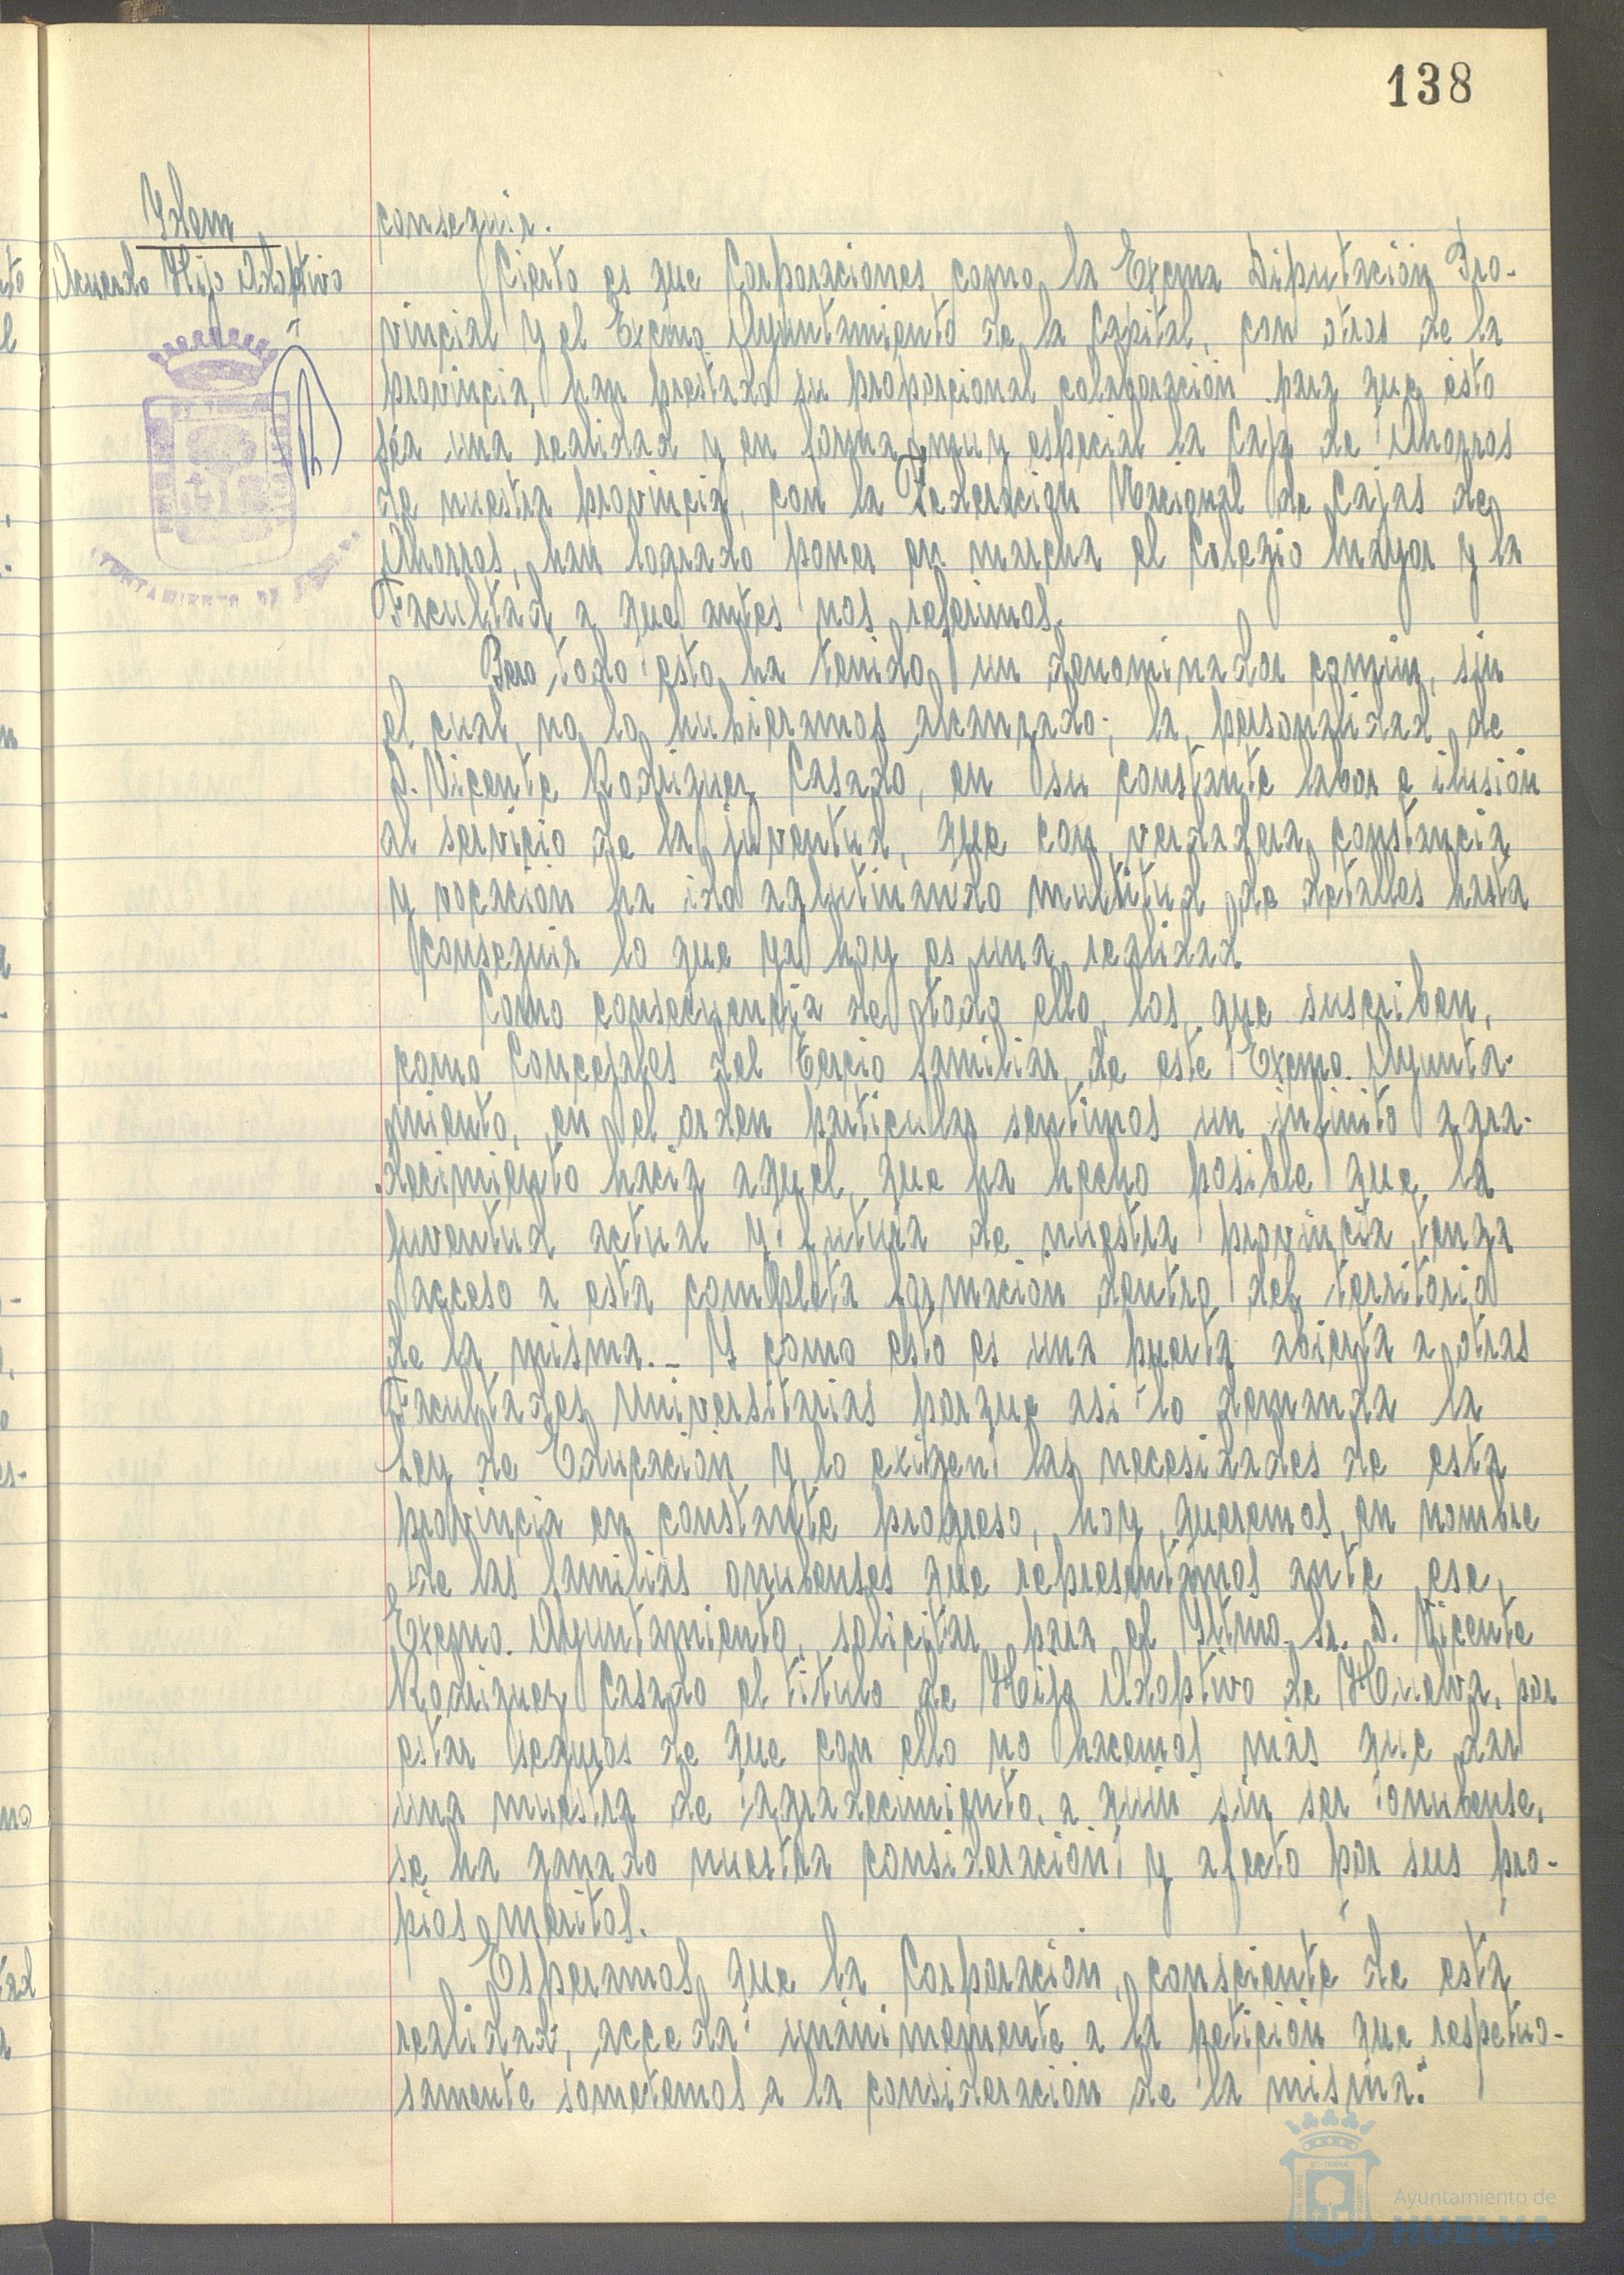 138
Idem
Acuerdo Hijo Adoptivo
conseguir.
Cierto es que Corporaciones como la Excma Diputación Pro-
vincial y el Excmo. Ayuntamiento de la Capital, con otros de la
provincia, han prestado su proporcional colaboración para que esto
sea una realidad y en forma muy especial la Caja de Ahorros
de nuestra provincia, con la Federación Nacional de Cajas de
Ahorros, han logrado poner en marcha el Colegio Mayor y la
Facultad a que antes nos referimos.
Pero todo esto ha tenido un denominador común, sin
el cual no lo hubieramos alcanzado; la personalidad de
D. Vicente Rodriguez Casado, en su constante labor e ilusión
al servicio de la juventud, que con verdadera constancia
y vocación ha ido aglutinando multitud de detalles hasta
conseguir lo que ya hoy es una realidad
Como consecuencia de todo ello, los que suscriben,
como Concejales del Tercio familiar de este Excmo. Ayunta-
miento, en el orden particular sentimos un infinito agra-
decimiento hacia aquel, que ha hecho posible que la
juventud actual y futura de nuestra provincia tenga
acceso a esta completa formación dentro del territorio
de la misma.- Y como esto es una puerta abierta a otras
Facultades Universitarias porque asi lo demanda la
Ley de Educación y lo exigen las necesidades de esta
provincia en constante progreso, hoy queremos, en nombre
de las familias onubenses que representamos ante ese,
Excmo. Ayuntamiento, solicitar para el Iltmo. Sr. D. Vicente
Rodriguez Casado el titulo de Hijo Adoptivo de Huelva, por
estar seguros de que con ello no hacemos más que dar
una muestra de agradecimiento, a quin sin ser onubense,
se ha ganado nuestra consideración y afecto por sus pro-
pios meritos.
Esperamos que la Corporación, consciente de esta
realidad, acceda unánimemente a la petición que respetuo-
samente sometemos a la consideración de la misma."
AYUNTAMIENTO DE HUELVA
Ayuntamiento de
HUELVA